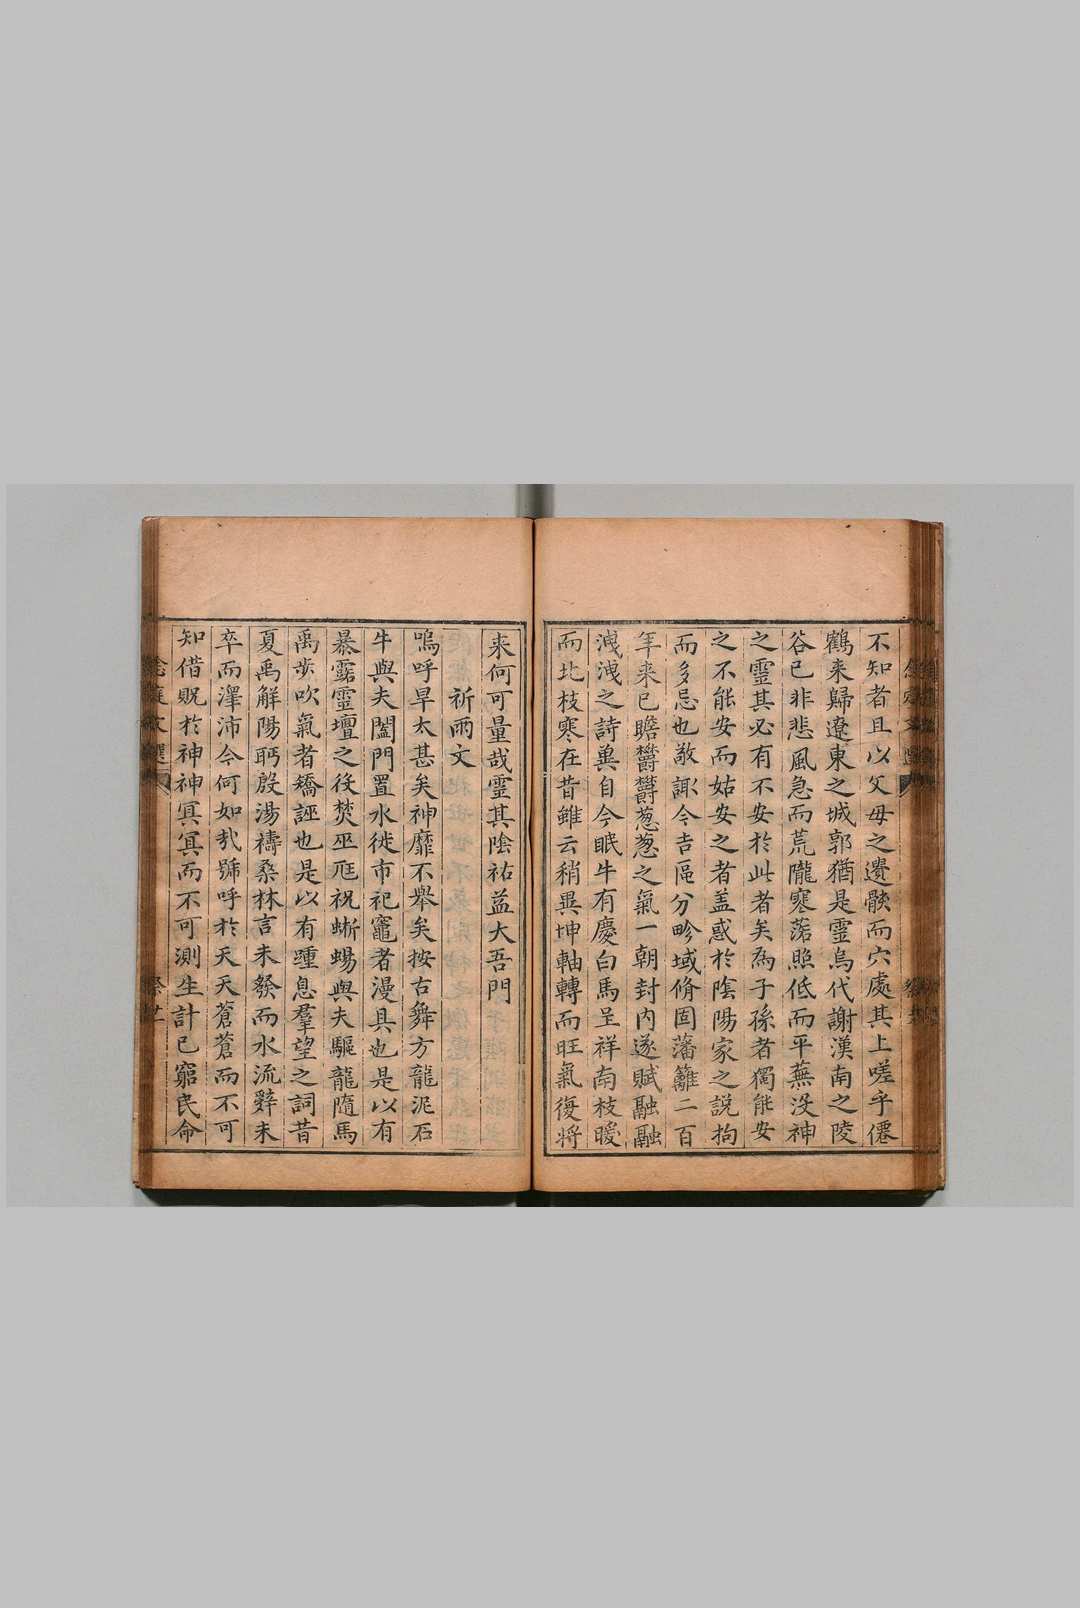 不知者且以父母之遺骸而穴處其上嗟乎僊
鶴來歸遼東之城郭猶是靈烏代謝漢南之陵
谷已非悲風急而荒隴寒落照低而平蕪沒神
之靈其必有不安於此者矣為子孫者獨能安
之不能安而姑安之者盖惑於陰陽家之說拘
而多忌也敬諏今吉區分畛域脩固藩籬二百
年来已瞻欝欝葱葱之氣一朝封內遂賦融融
洩洩之詩兾自今眠牛有慶白馬呈祥南枝暖
而北枝寒在昔雖云稍異坤軸轉而旺氣復將
来何可量哉靈其陰祐益大吾門
祈雨文
嗚呼旱太甚矣神靡不舉矣按古舞方龍泥石
牛與夫闔門置水徙市祀竈者漫具也是以有
暴露靈壇之役焚巫尫祝蜥蜴與夫驅龍隋馬
禹步吹氣者矯誣也是以有踵息羣望之詞昔
夏禹解陽眄殷湯禱桑林言未發而水流辭未
卒而澤沛今何如㦲號呼於天天蒼蒼而不可
知借貺於神神冥冥而不可測生計已窮民命